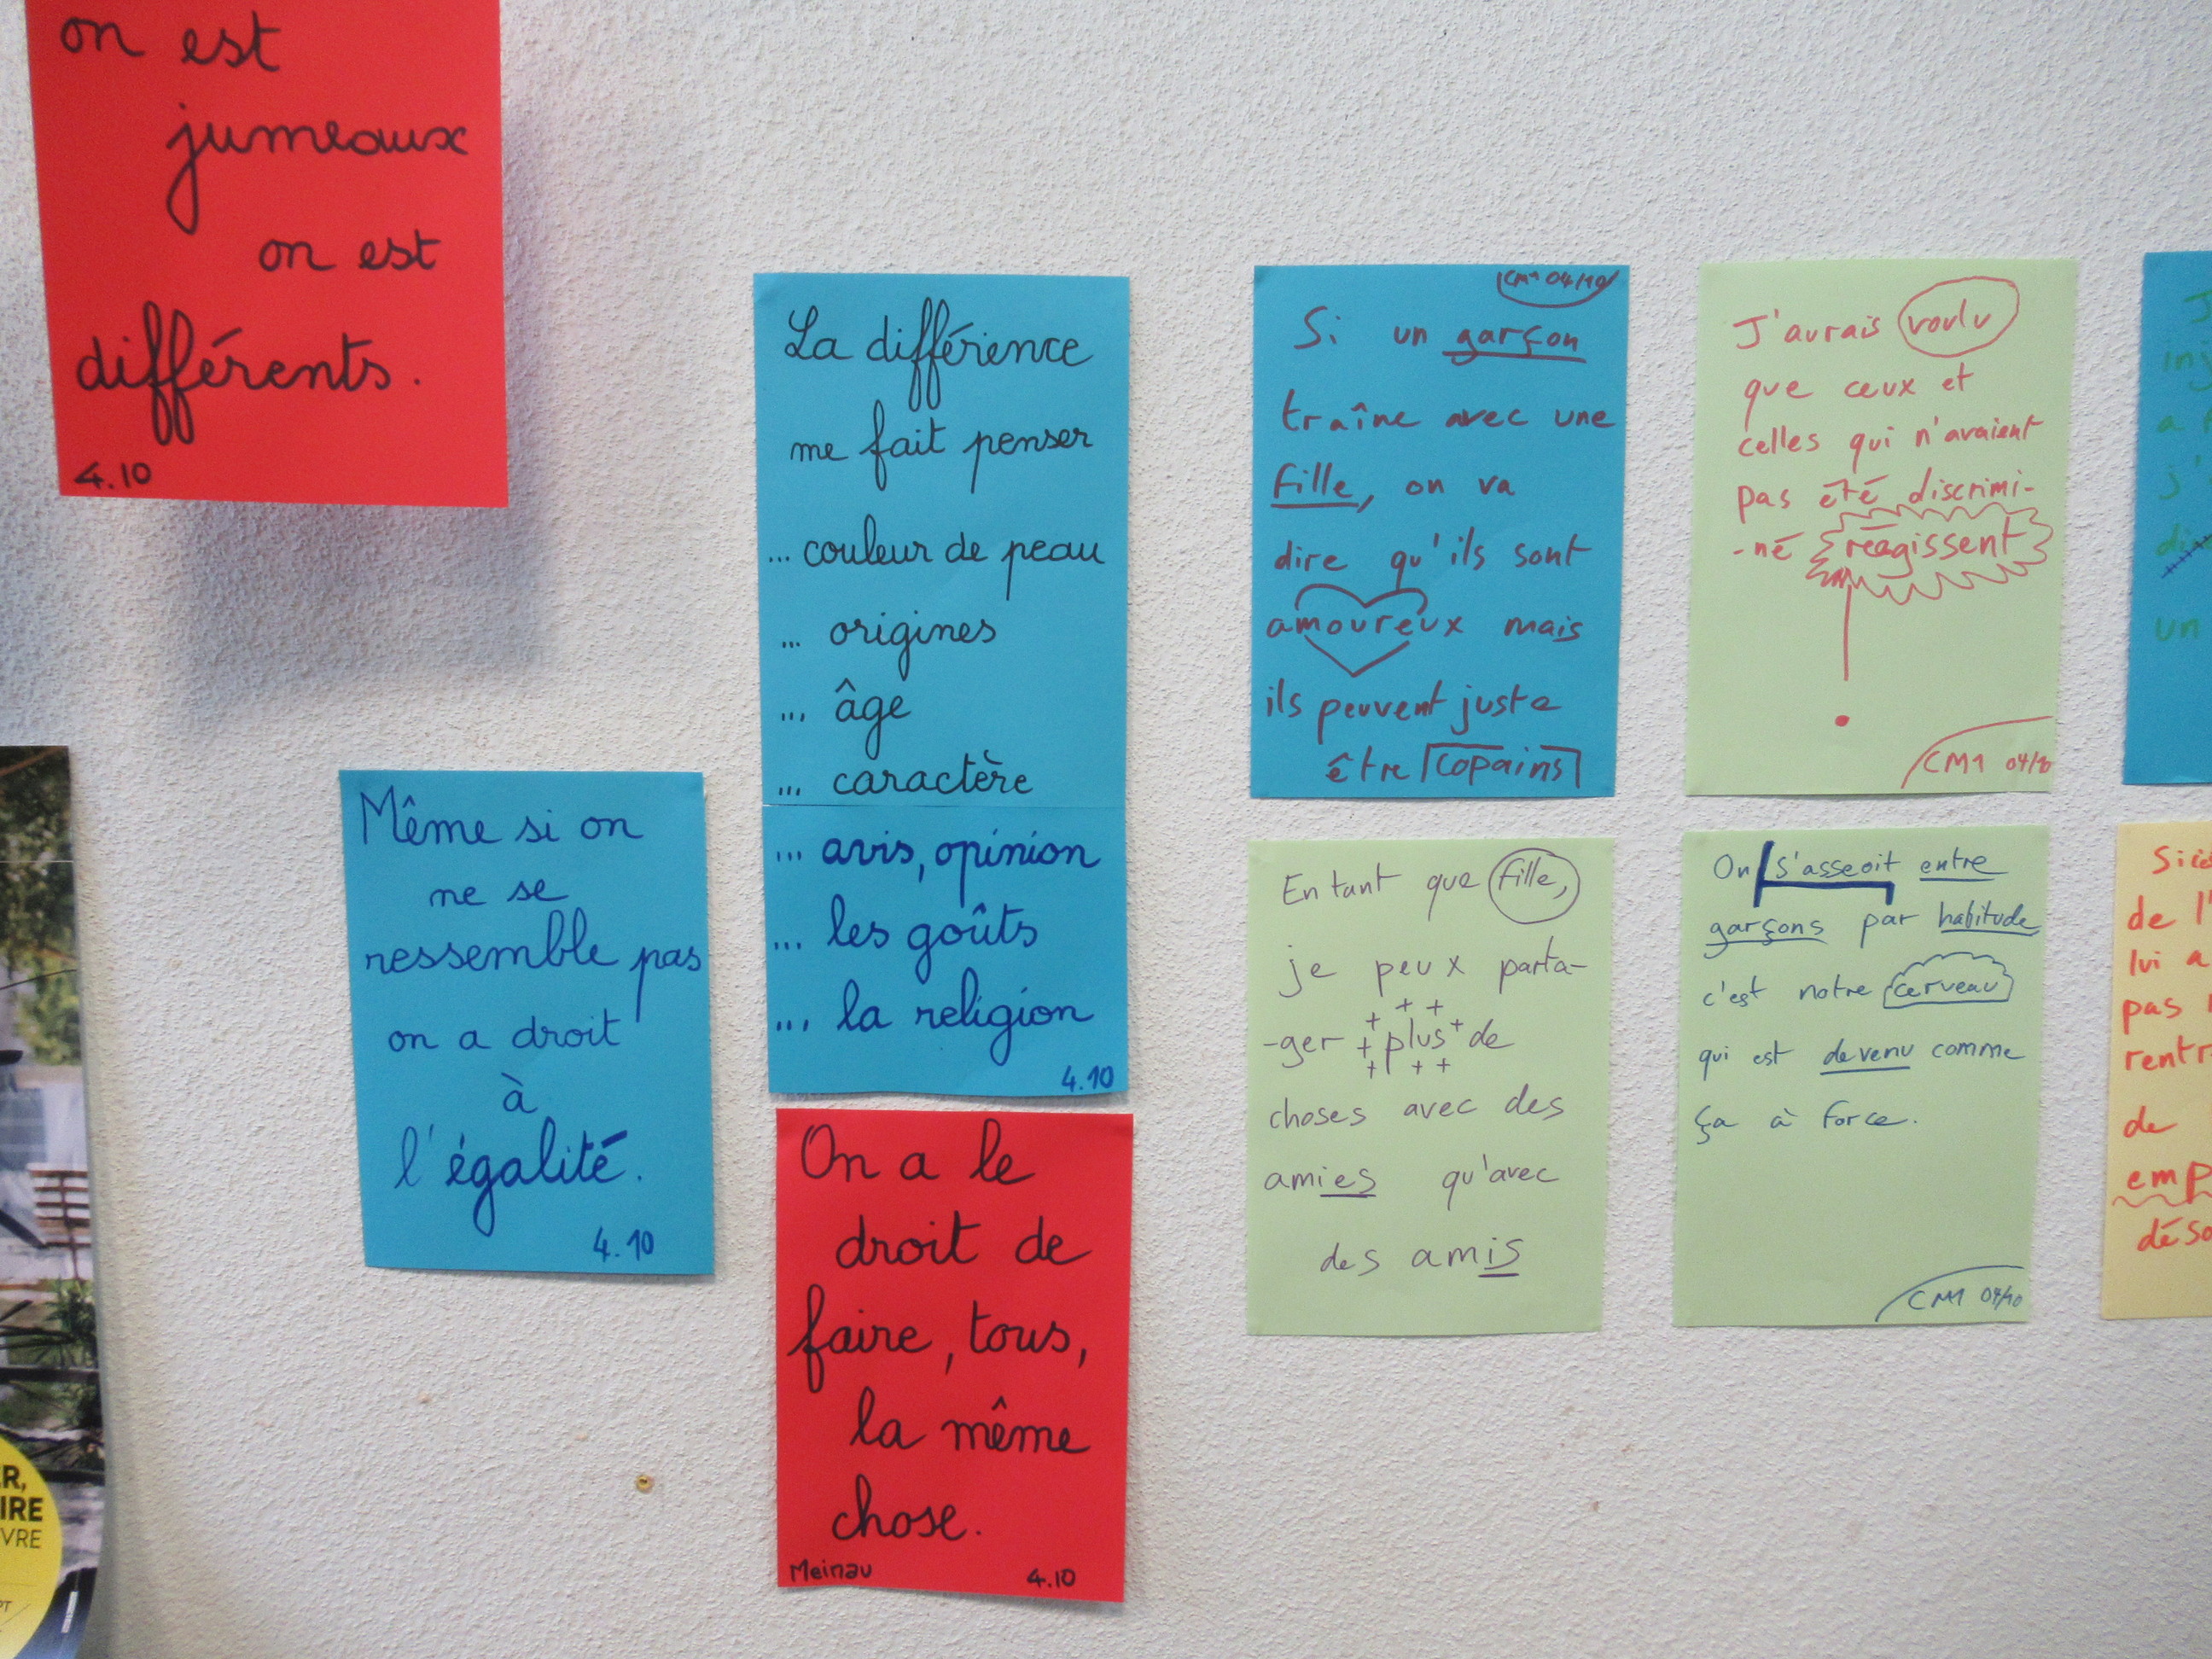 on est
jumeaux
on est
différents.
4.10
Même si on
ne se
ressemble pas
on a droit
à
l'égalité.
4.10
La différence
me fait penser
... couleur de peau
... origines
... âge
... caractère
... avis, opinion
... les goûts
... la religion
4.10
On a le
droit de
faire, tous,
la même
chose.
Meinau 4.10
CM1 04/10
Si un garçon
traîne avec une
fille, on va
dire qu'ils sont
amoureux mais
ils peuvent juste
être copains
En tant que fille,
je peux parta-
-ger plus de
choses avec des
amies qu'avec
des amis
J'aurais voulu
que ceux et
celles qui n'avaient
pas été discrimi-
-né réagissent
!
CM1 04/10
On s'asseoit entre
garçons par habitude
c'est notre cerveau
qui est devenu comme
ça à force.
CM1 04/10
un
de l'
lui a
pas
rentr
de
emp
déso
R,
IRE
VRE